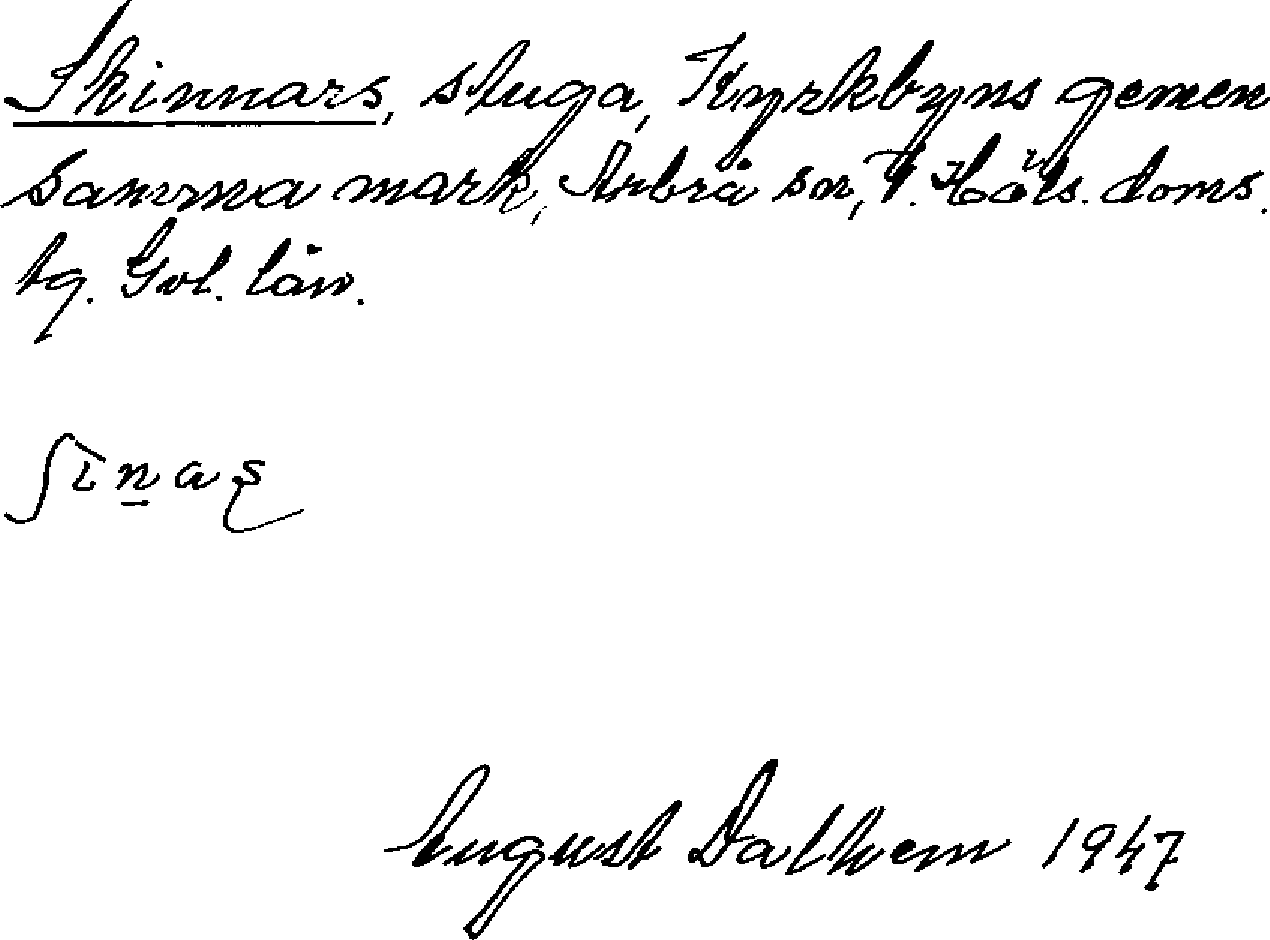 Skinnars, stuga, Kyrkbyns gemen
samma mark, Arbrå sn, V. Häls. doms.
tg. Gvl. län.
August Dalhem 1947